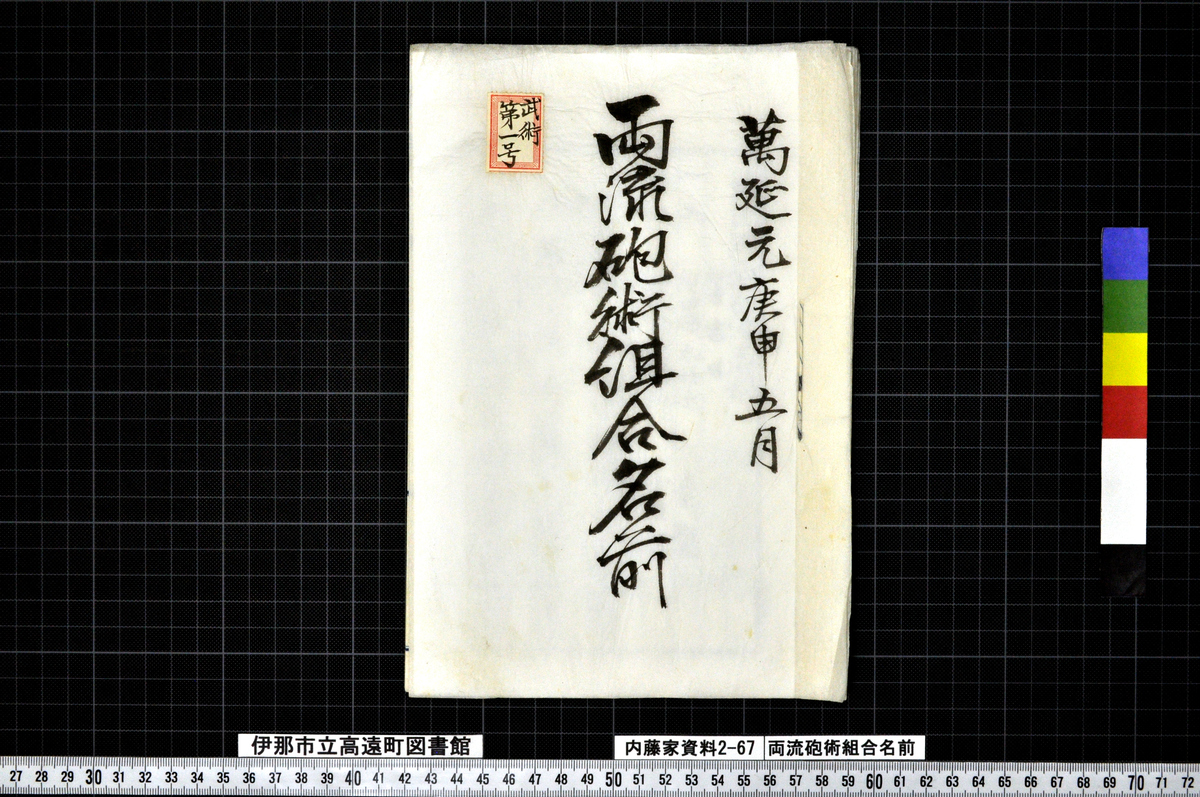 萬延元庚申五月
両流砲術組合名前
武術
第一号
伊那市立高遠町図書館
内藤家資料2-67
両流砲術組合名前
27 28 29 30 31 32 33 34 35 36 37 38 39 40 41 42 43 44 45 46 47 48 49 50 51 52 53 54 55 56 57 58 59 60 61 62 63 64 65 66 67 68 69 70 71 72